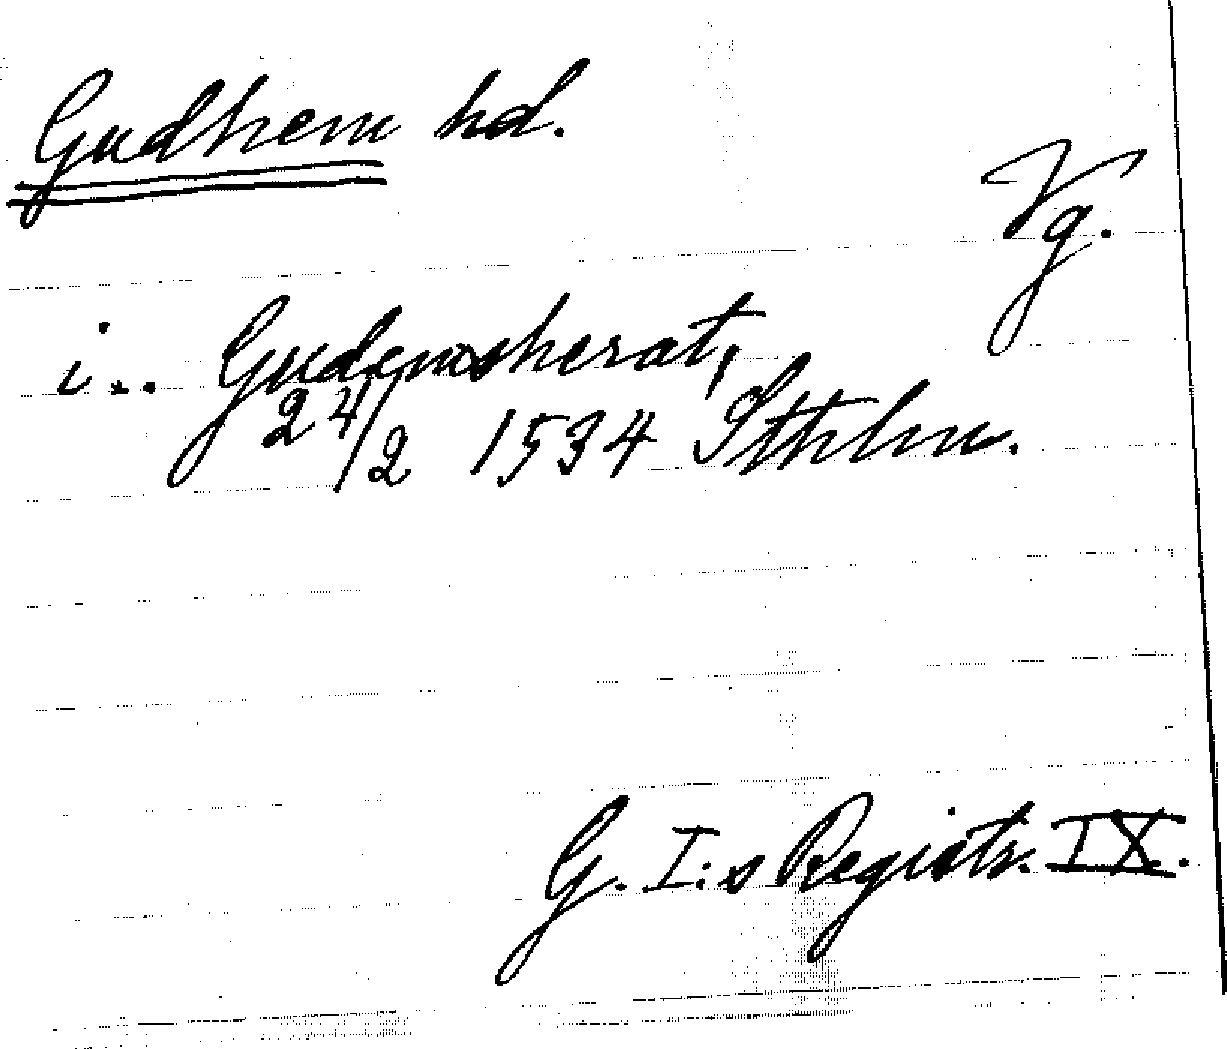 Gudhem hd.
Vg.
i... Gudemsherat,
24/2 1534 Sthlm.
G. I:s Registr. IX.